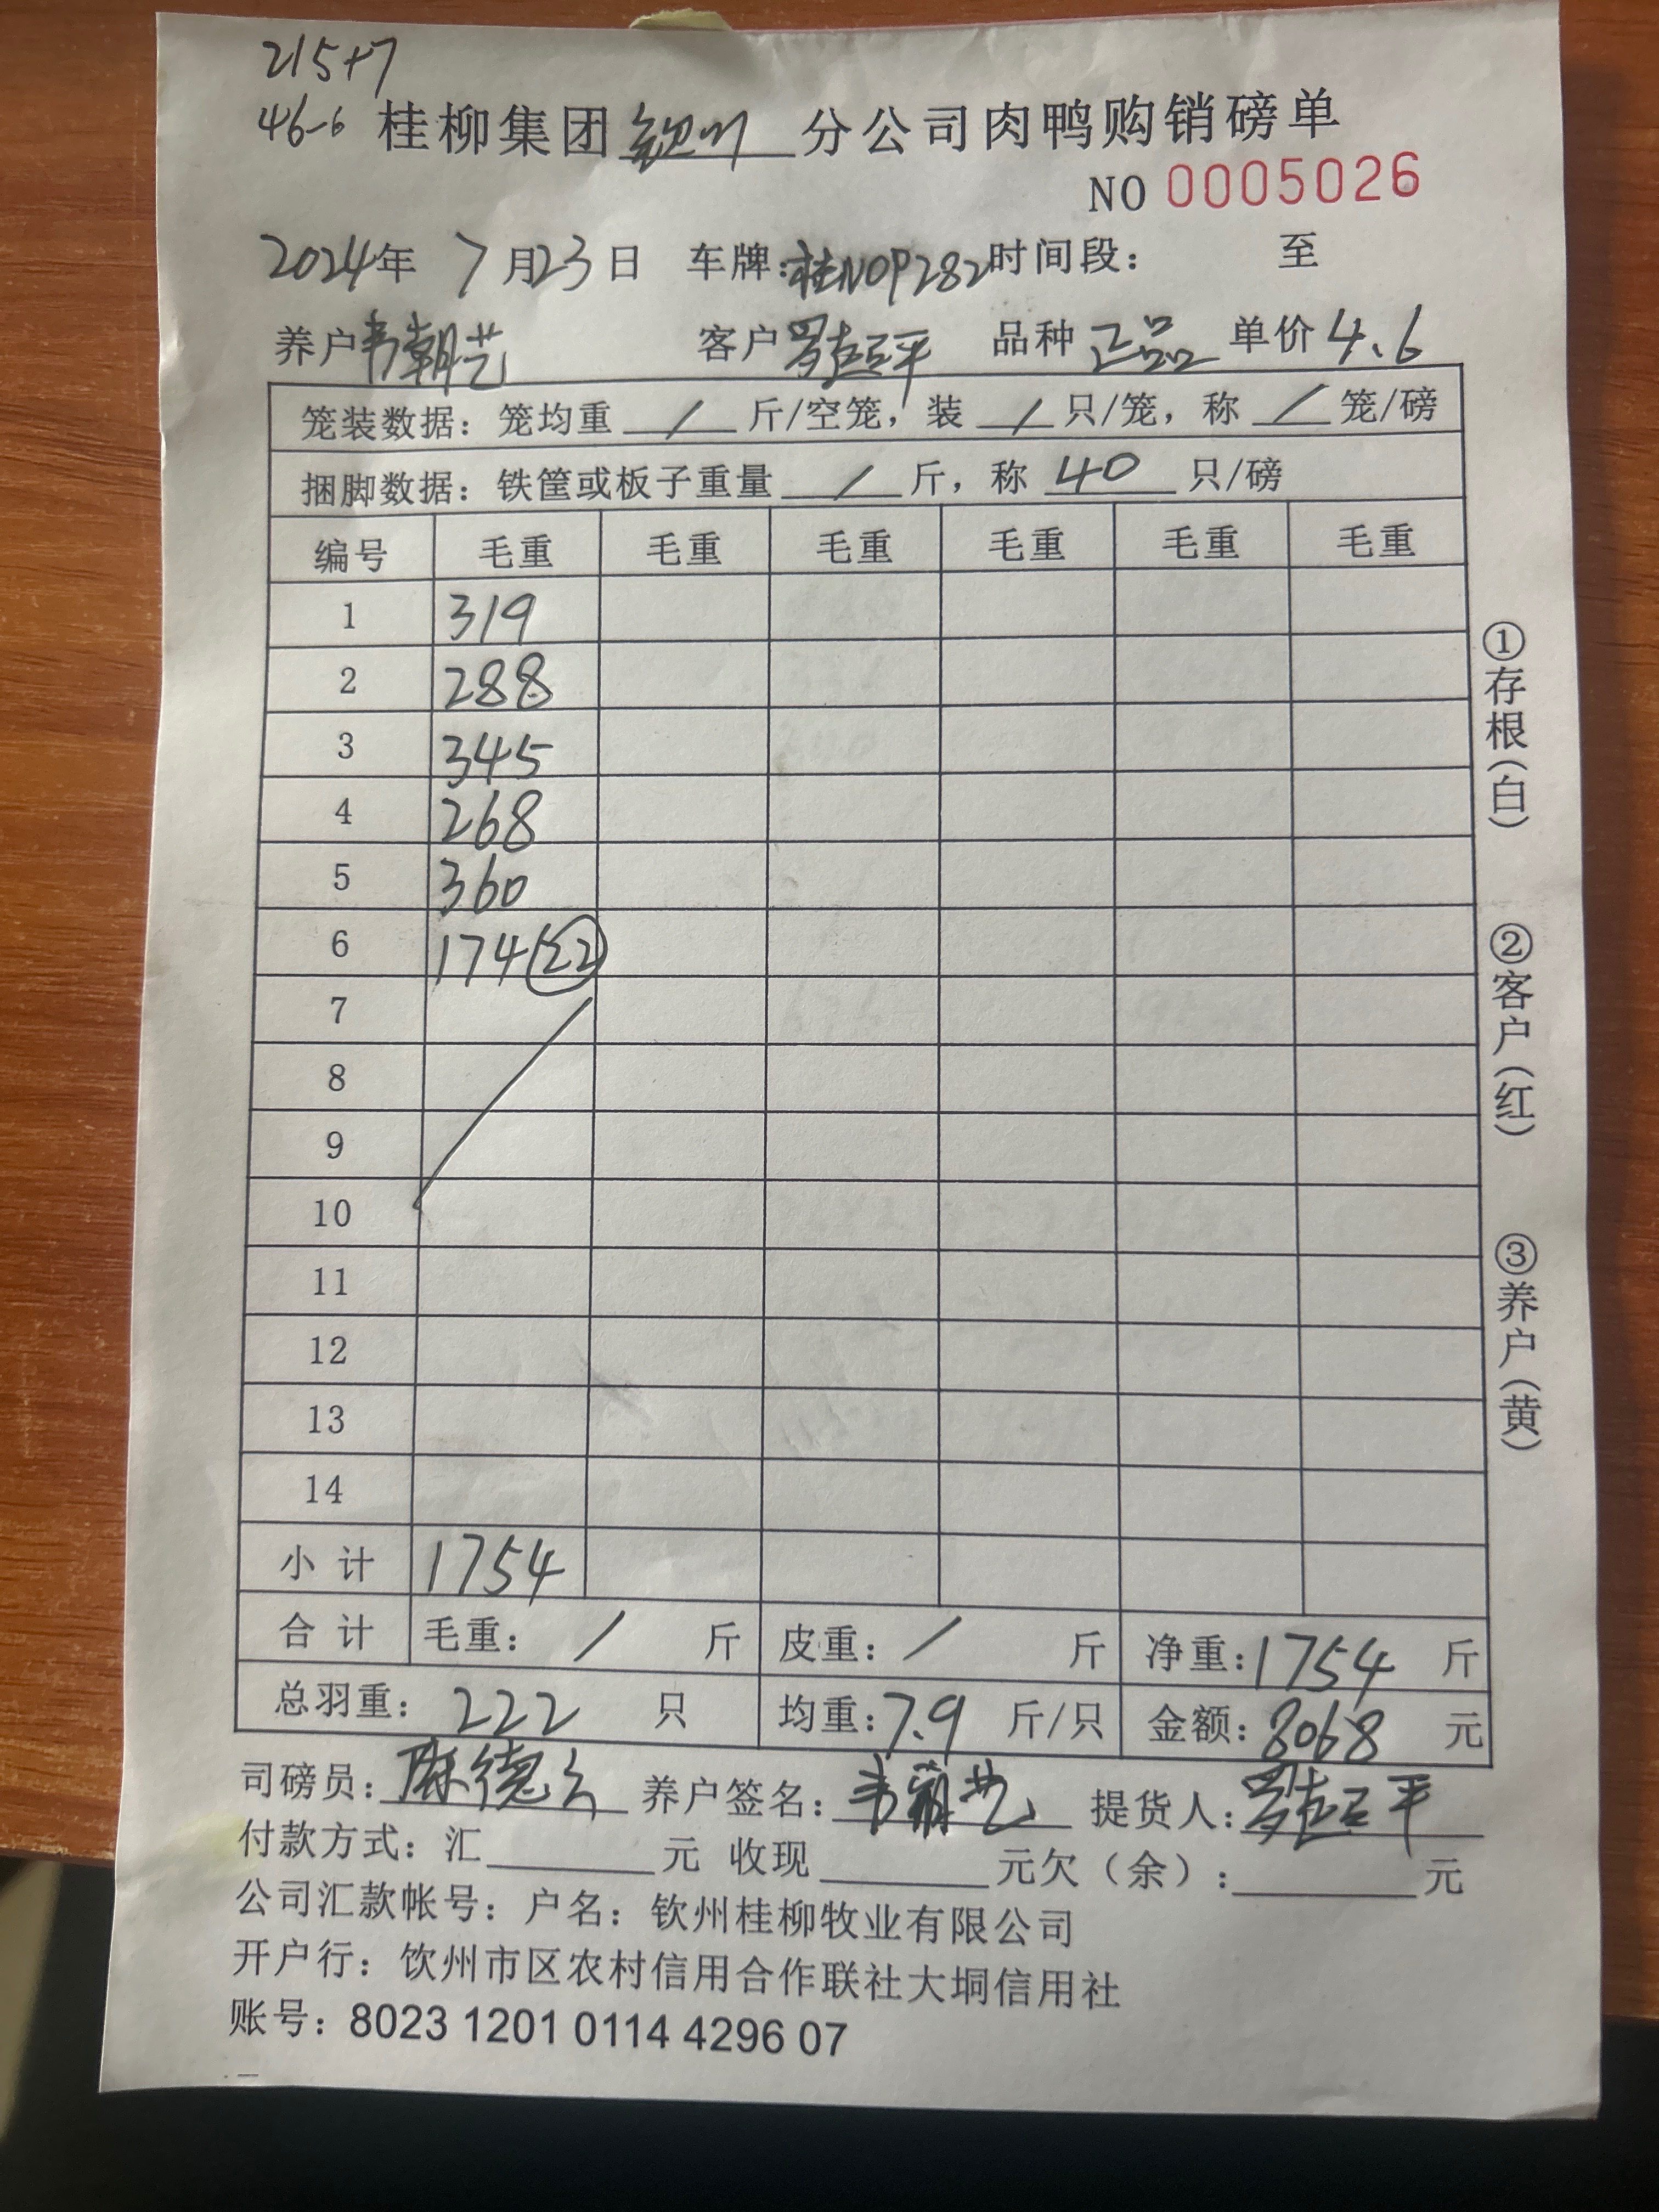 215+7
46-6 桂柳集团钦州分公司肉鸭购销磅单
NO 0005026
2024年 7月23日 车牌:桂N0P282 时间段: 至
养户韦朝艺 客户罗 平 品种 正品 单价4.6
笼装数据: 笼均重 / 斤/空笼, 装 / 只/笼, 称 / 笼/磅
捆脚数据: 铁筐或板子重量 / 斤, 称 40 只/磅
编号 毛重 毛重 毛重 毛重 毛重 毛重
1 319
2 288
3 345
4 268
5 360
6 174 22
7
8
9
10
11
12
13
14
小计 1754
合计 毛重: / 斤 皮重: / 斤 净重:1754 斤
总羽重: 222 只 均重:7.9 斤/只 金额:8068 元
司磅员: 德 养户签名:韦朝艺 提货人:罗 平
付款方式: 汇 元 收现 元欠(余): 元
公司汇款帐号: 户名: 钦州桂柳牧业有限公司
开户行: 钦州市区农村信用合作联社大垌信用社
账号: 8023 1201 0114 4296 07
①存根(白)
②客户(红)
③养户(黄)